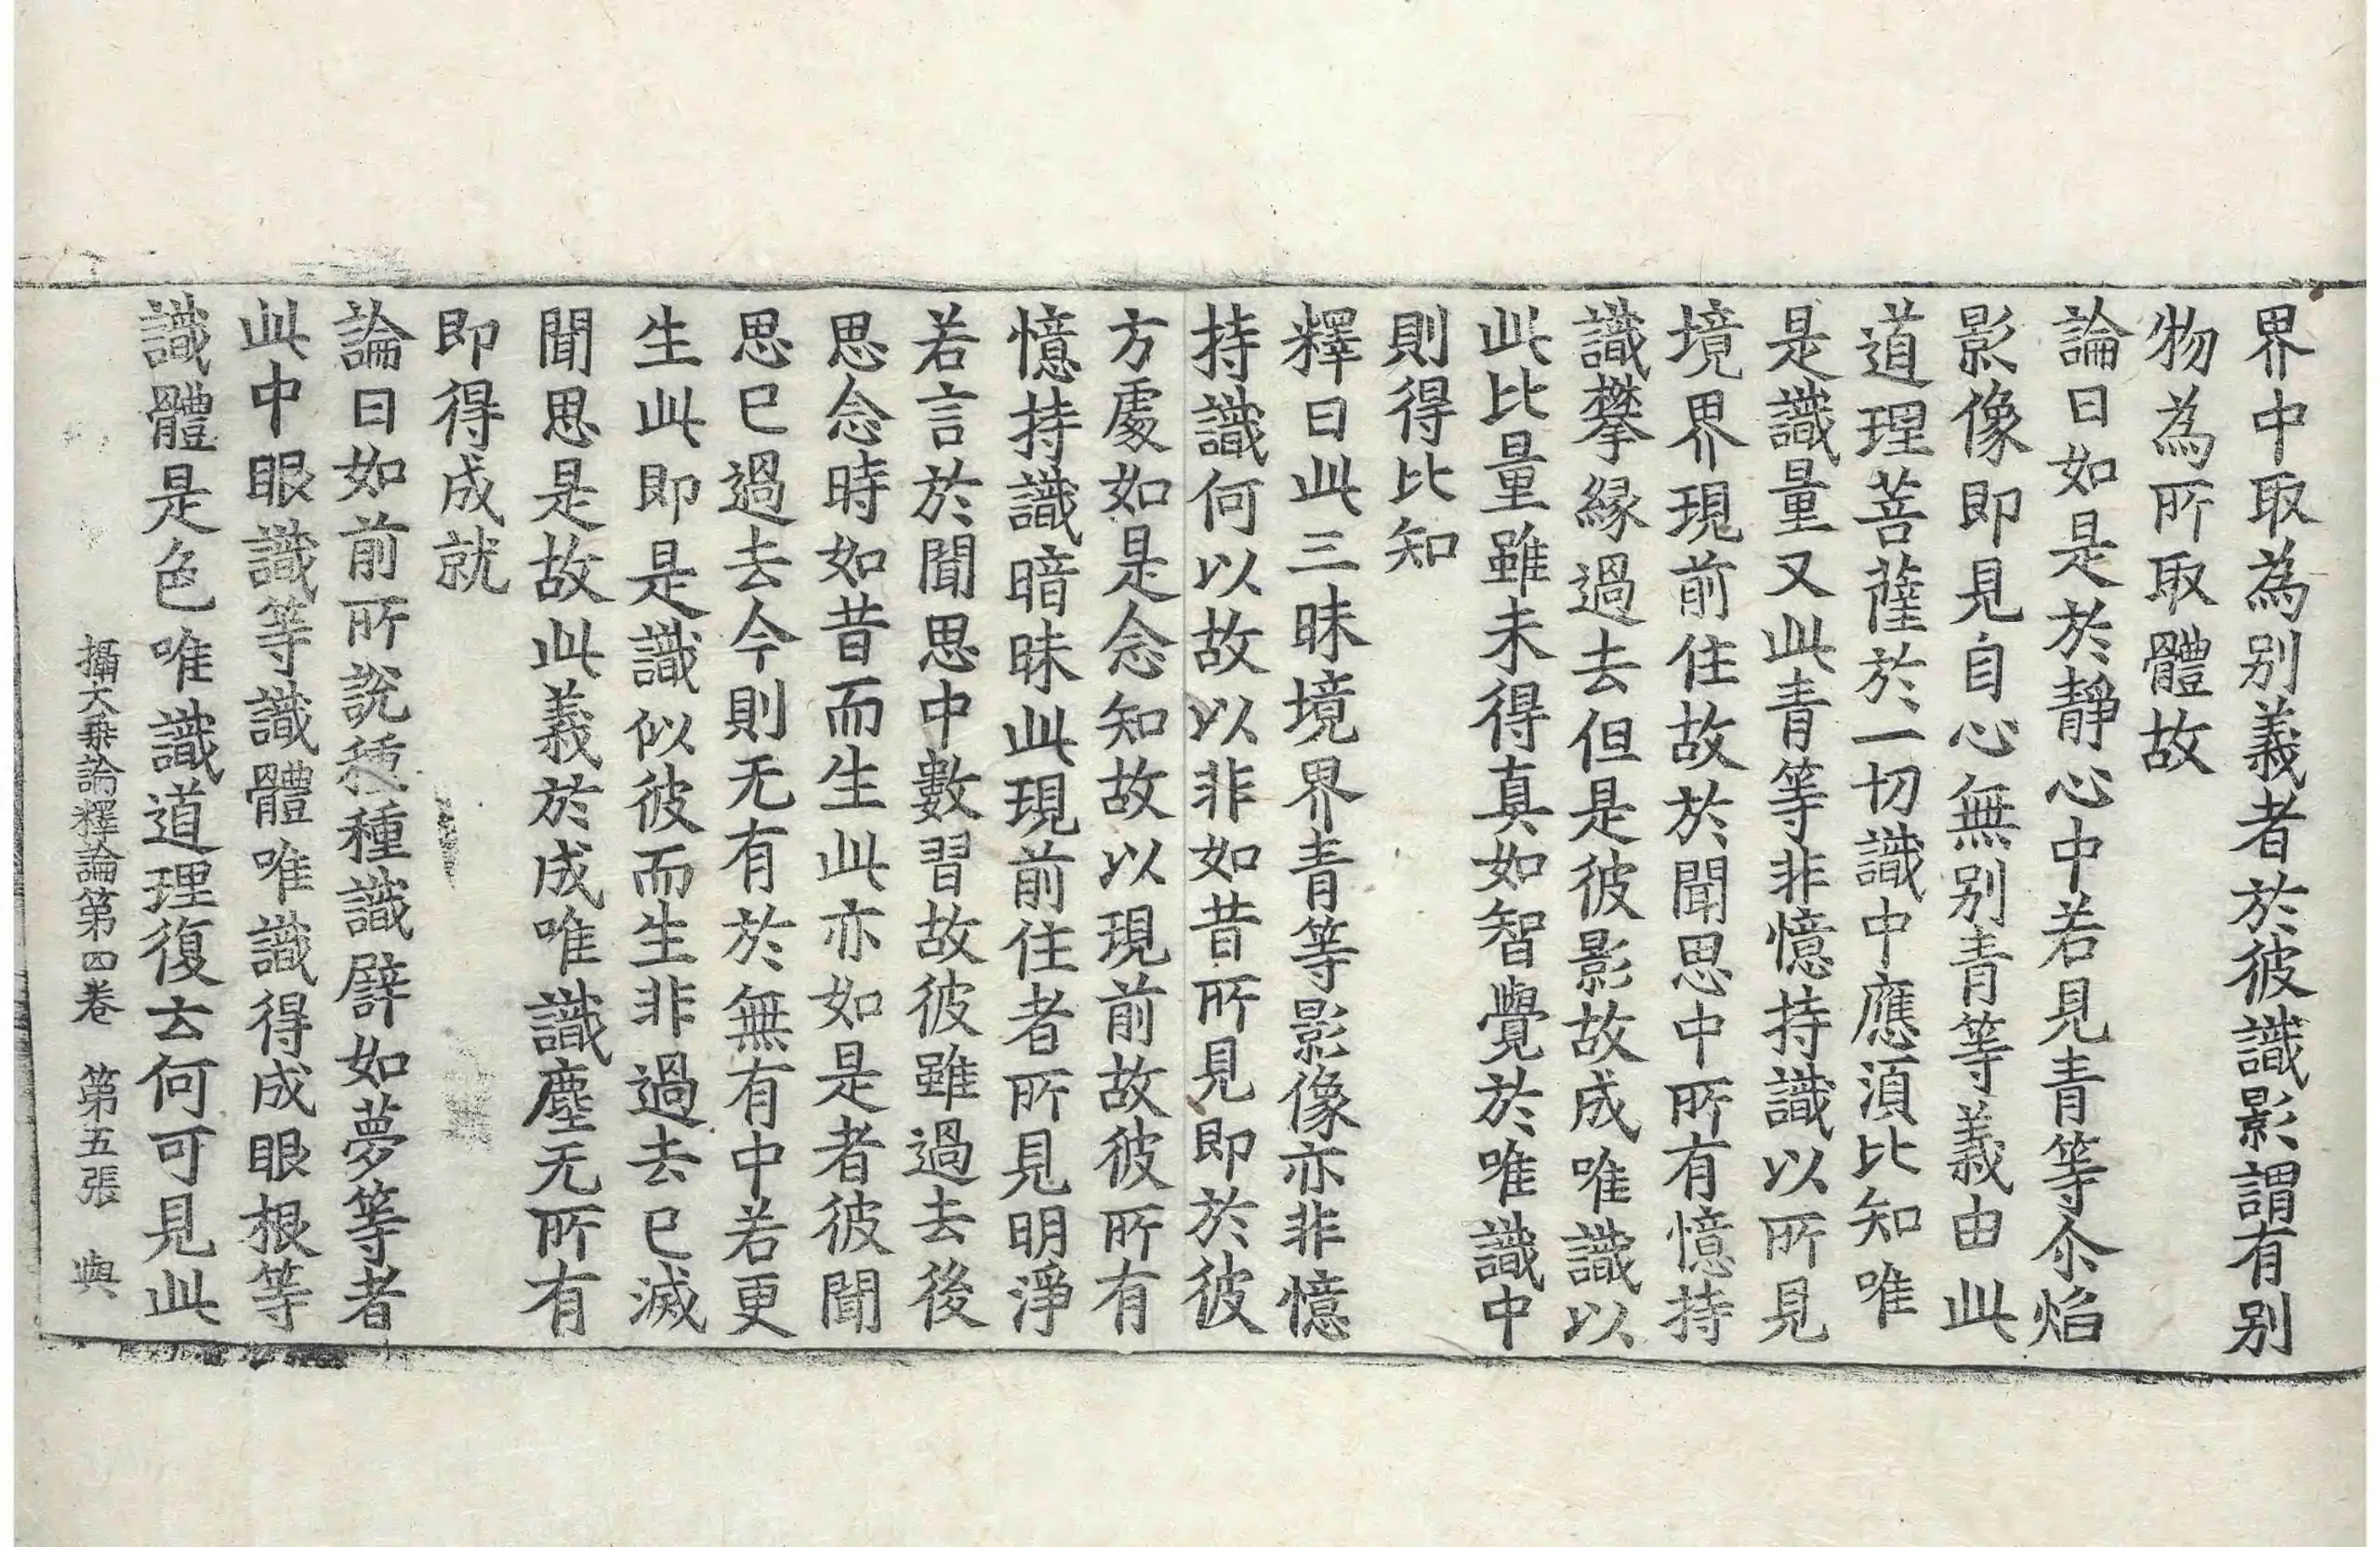 界中取為别義者於彼識影謂有别
物為所取體故
論曰如是於靜心中若見青等尒焰
影像即見自心無别青等義由此
道理菩薩於一切識中應湏比知唯
是識量又此青等非憶持識以所見
境界現前住故於聞思中所有憶持
識攀緣過去但是彼影故成唯識以
此比量雖未得真如智覺於唯識中
則得比知
釋曰此三昧境界青等影像亦非憶
持識何以故以非如昔所見即於彼
方處如是念知故以現前故彼所有
憶持識暗昧此現前住者所見明淨
若言於聞思中數習故彼雖過去後
思念時如昔而生此亦如是者彼聞
思已過去今則无有於無有中若更
生此即是識似彼而生非過去已滅
聞思是故此義於成唯識塵无所有
即得成就
論曰如前所說種種識譬如夢等者
此中眼識等識體唯識得成眼根等
識體是色唯識道理復云何可見此
攝大乘論釋論第四卷　第五張　與